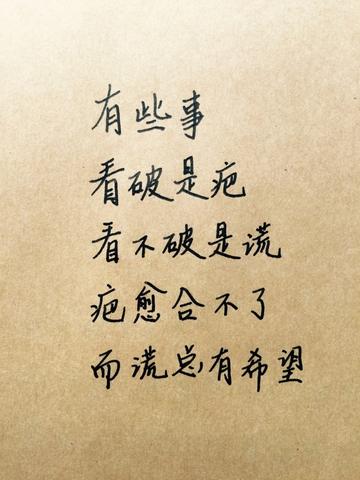 有些事
看破是疤
看不破是谎
疤愈合不了
而谎总有希望